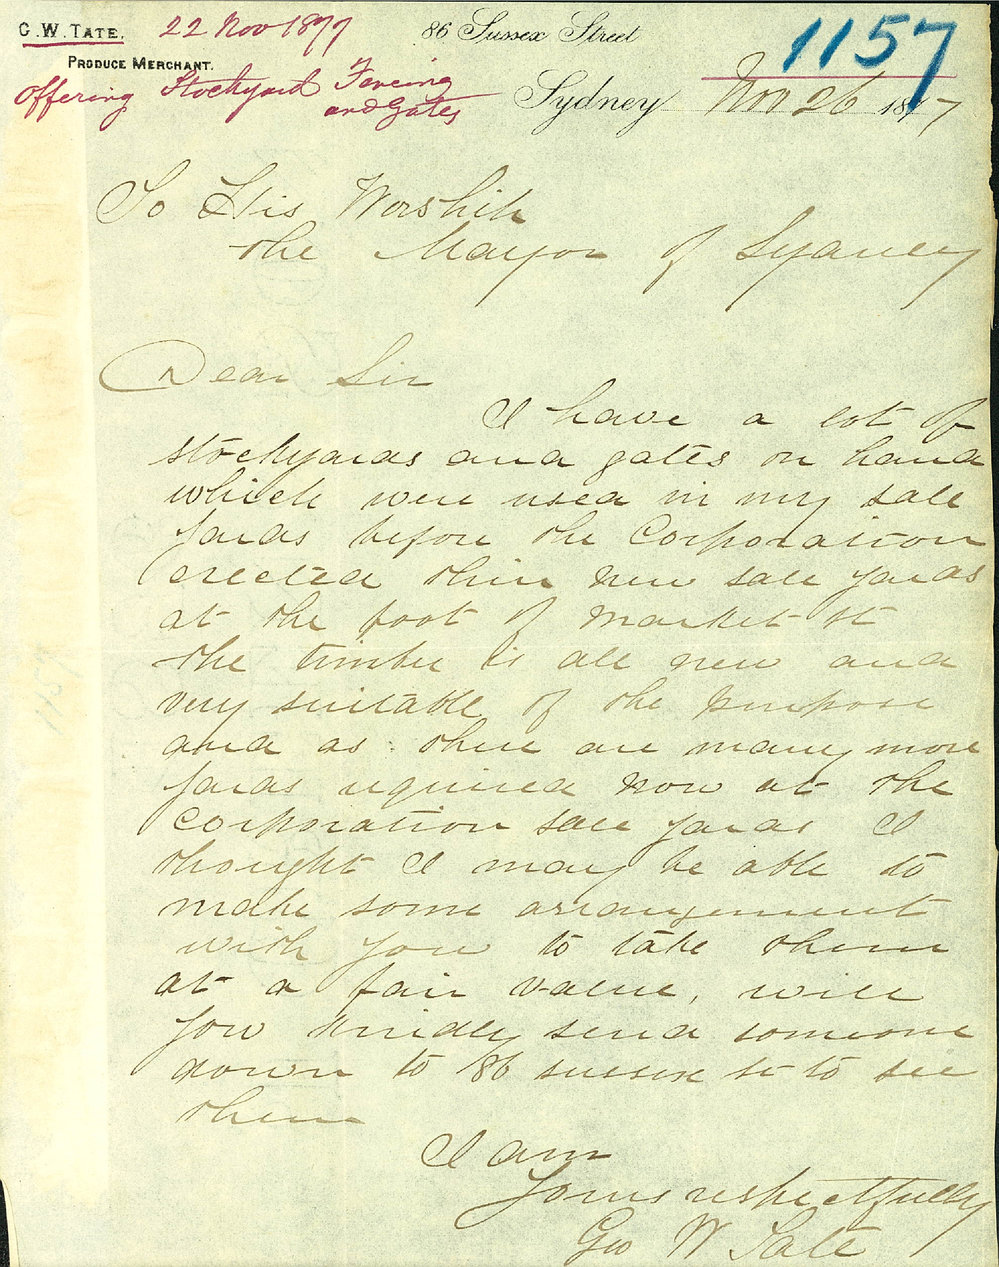 G. W. TATE.
PRODUCE MERCHANT.
22 Nov 1877
Offering Stockyard Fencing
and Gates
86 Sussex Street
1157
Sydney Nov 26 1877
To His Worship
the Mayor of Sydney
Dear Sir
I have a lot of
stockyards and gates on hand
which were used in my sale
yards before the Corporation
erected their new sale yards
at the foot of Market St
the timber is all new and
very suitable of the purpose
and as there are many more
yards required now at the
Corporation sale yards I
thought I may be able to
make some arrangement
with you to take them
at a fair value, will
you kindly send someone
down to 86 Sussex St to see
them
I am
Yours respectfully
Geo W Tate